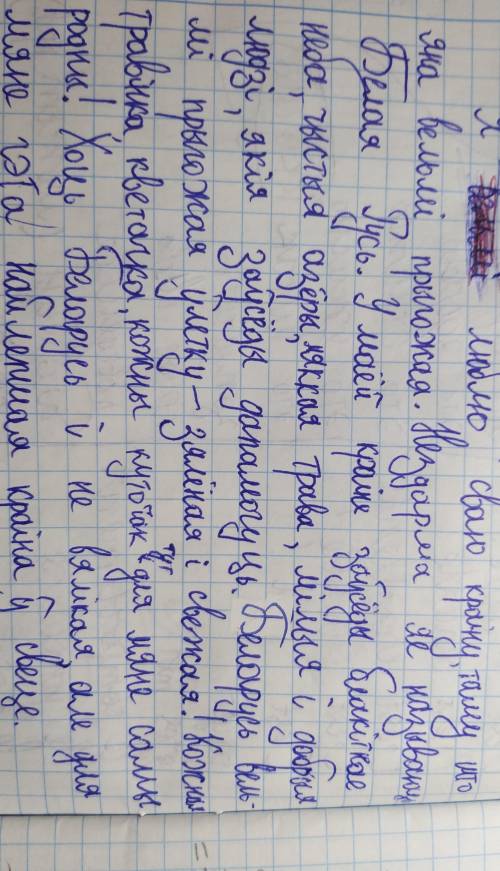 Я люблю сваю краіну, таму што
яна вельмі прыгожая. Нездарма яе называюць
Белая Русь. У маей краіне заўсёды блакітнае
неба, чыстыя азёры, мяккая трава, мілыя і добрыя
людзі, якія заўсёды дапамогуць. Беларусь вель-
мі прыгожая улетку – зялёная і свежая. Кожная
травінка, кветачка, кожны куточак тут для мяне самы
родны! Хоць Беларусь і не вялікая, але для
мяне гэта найлепшая краіна ў свеце.